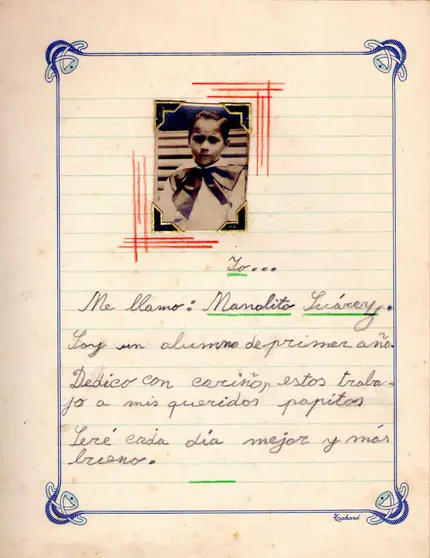 Yo...
Me llamo: Manolito Suárez.
Soy un alumno de primer año.
Dedico con cariño, estos traba-
jo a mis queridos papitos
Seré cada día mejor y más
bueno.
Tabaré